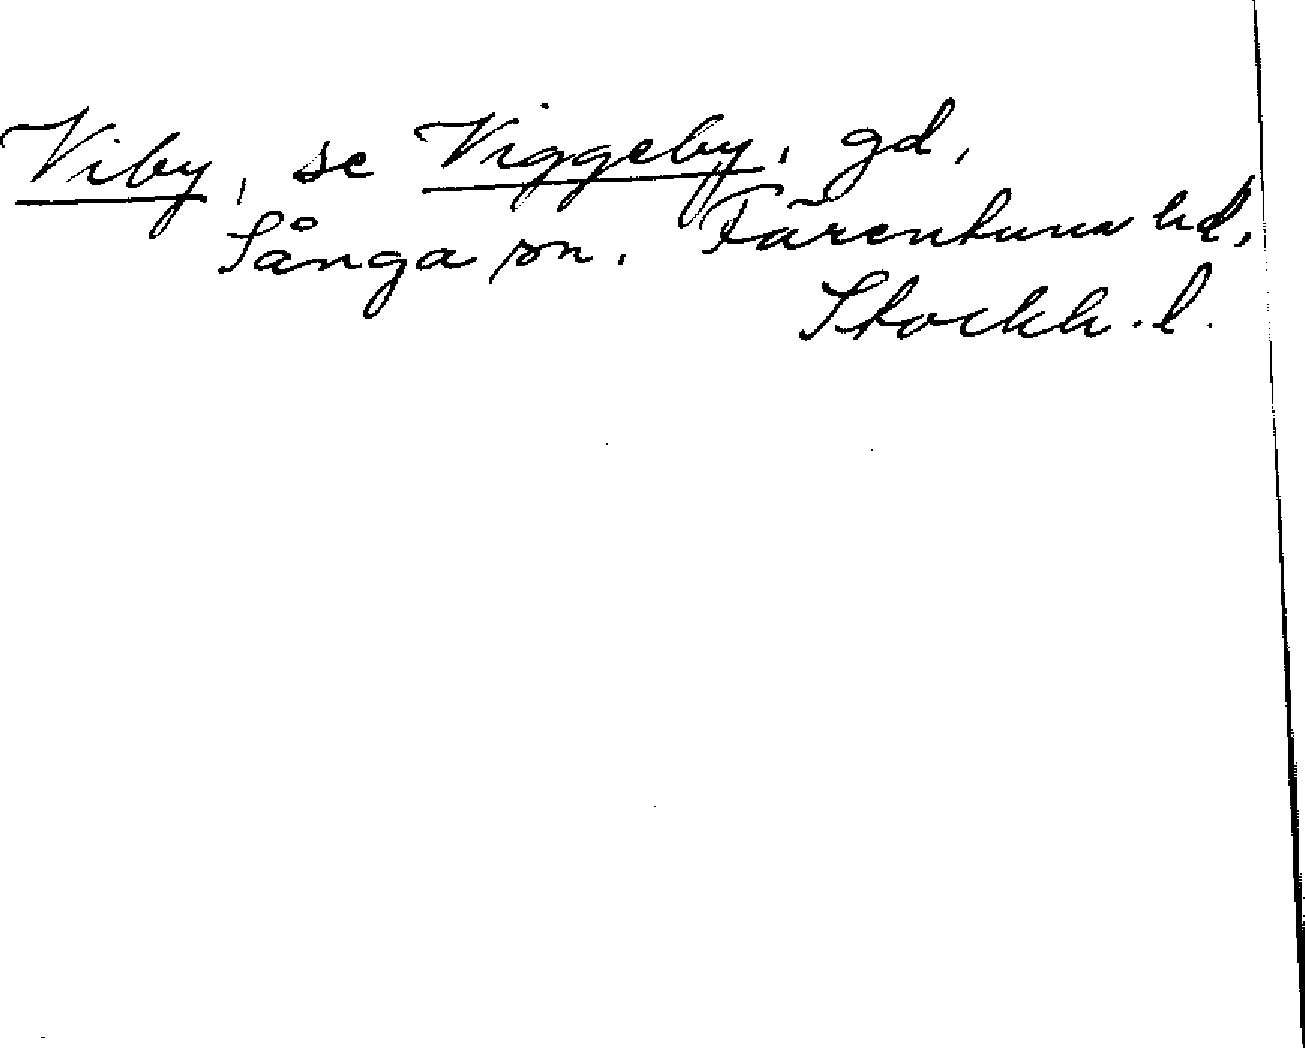 Viby, se Viggeby, gd,
Sånga sn. Färentuna hd,
Stockh. l.